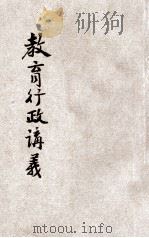 教育行政講義
www.mtoou.info